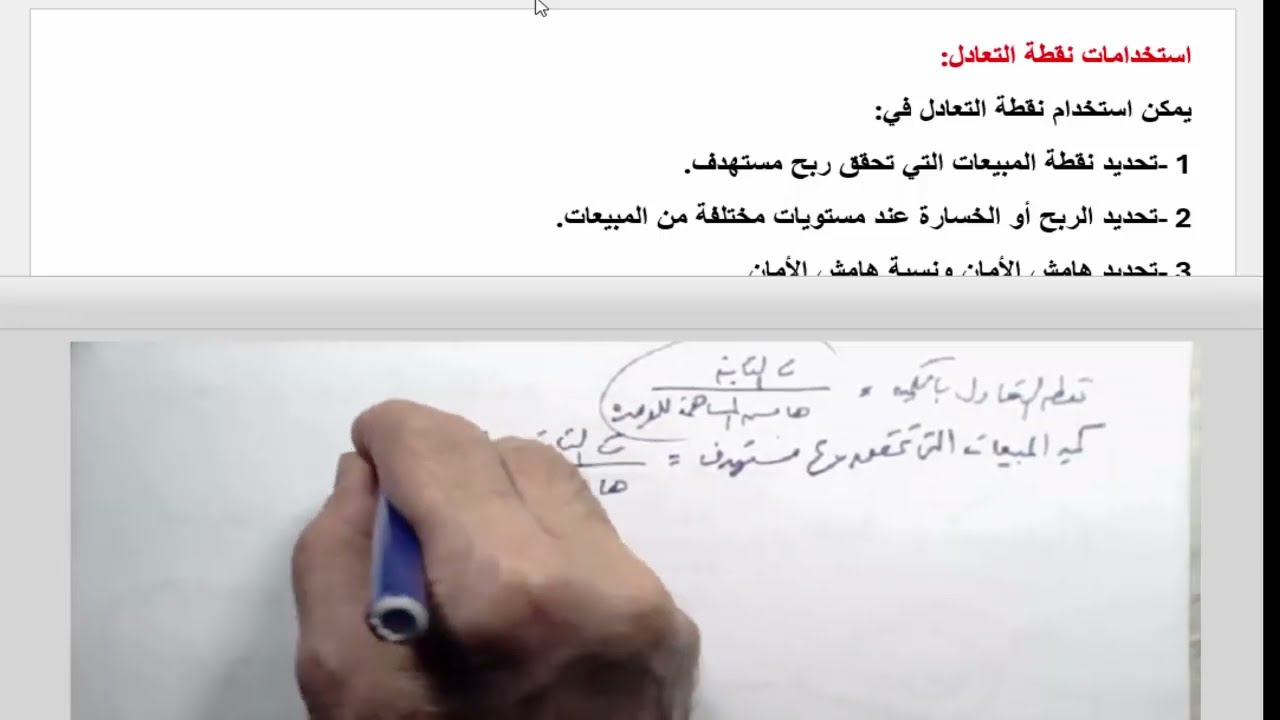 استخدامات نقطة التعادل:
يمكن استخدام نقطة التعادل في:
1 -تحديد نقطة المبيعات التي تحقق ربح مستهدف.
2 -تحديد الربح أو الخسارة عند مستويات مختلفة من المبيعات.
3 -تحديد هامش الأمان ونسبة هامش الأمان
نقطة التعادل بالكمية = ت الثابتة
هامش المساهمة للوحدة
كمية المبيعات التى تحقق ربح مستهدف = ت
ها